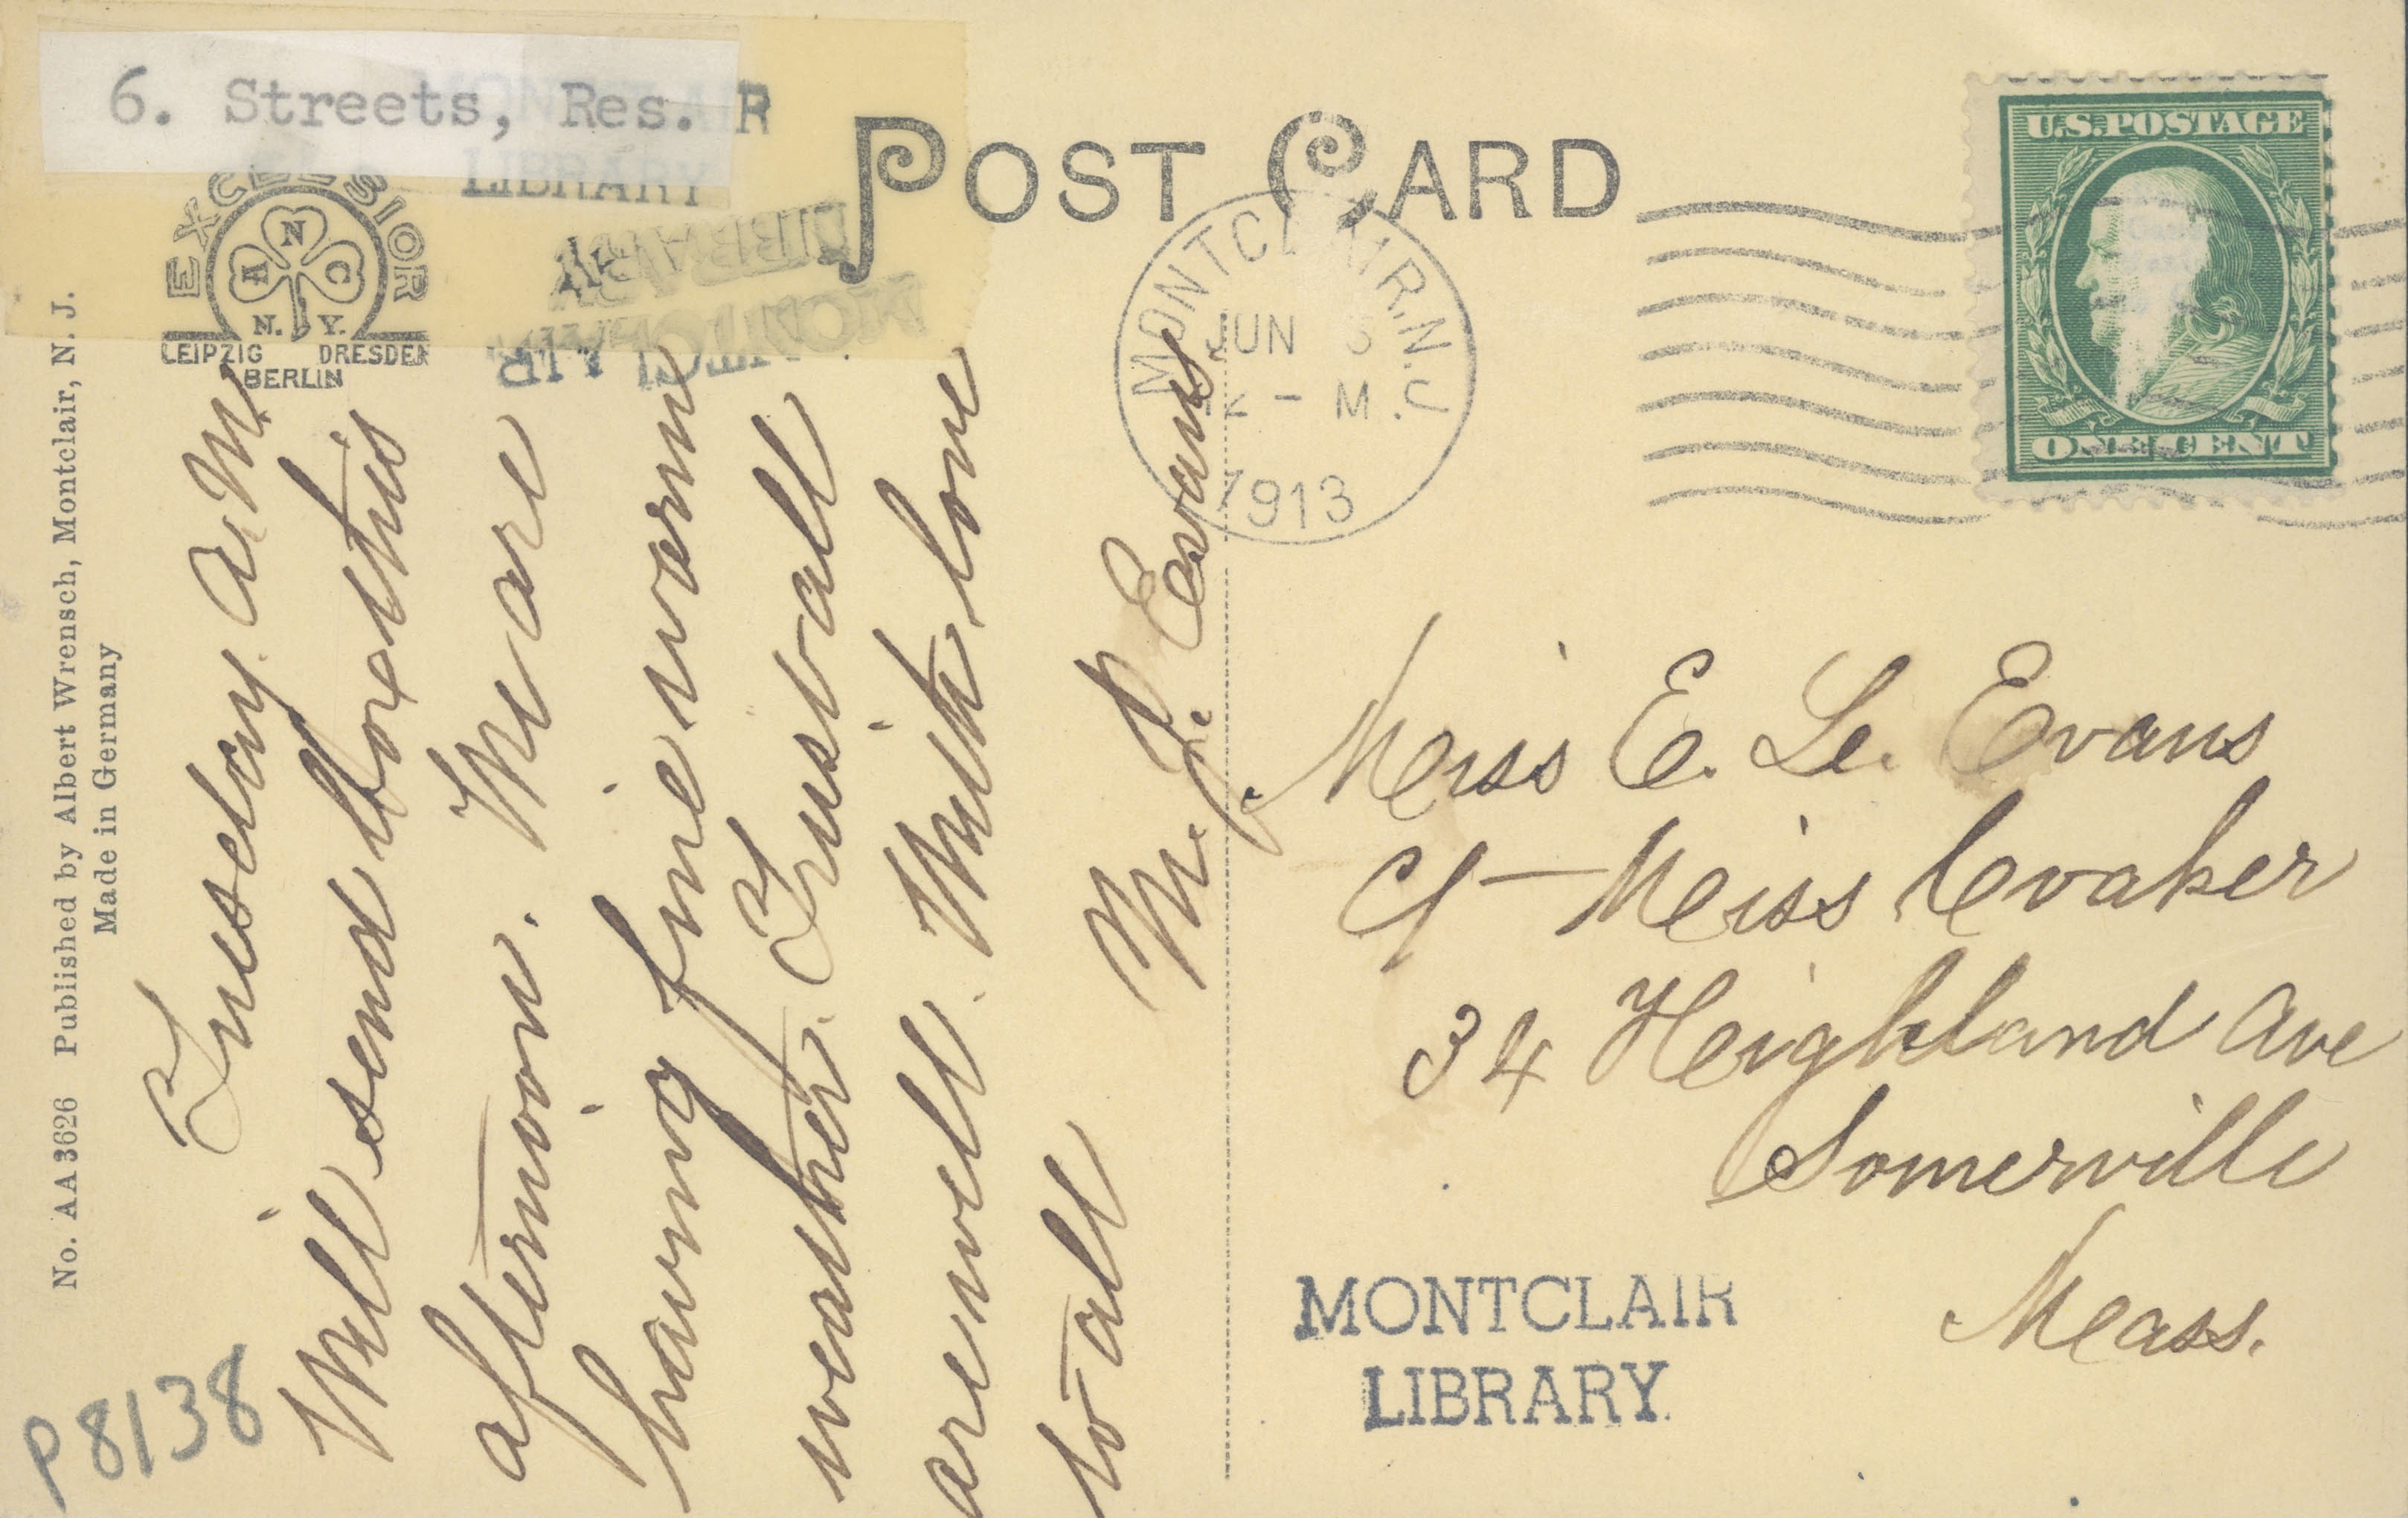 6. Streets, Res.
MONTCLAIR
LIBRARY
POST CARD
EXCELSIOR
A N C
N. Y.
LEIPZIG DRESDEN
BERLIN
LIBRARY
MONTCLAIR
MONTCLAIR. N. J.
JUN 3
M
1913
U.S. POSTAGE
ONE CENT
No. AA 3626 Published by Albert Wrensch, Montclair, N. J.
Made in Germany
Tuesday A.M.
Will send box this
afternoon. We are
having fine warm
weather. Trust all
are well. With love
to all
M. J. P. Evans
Miss E. Le. Evans
Miss Coaker
34 Heighland Ave
Somerville
Mass.
MONTCLAIR
LIBRARY
P8138